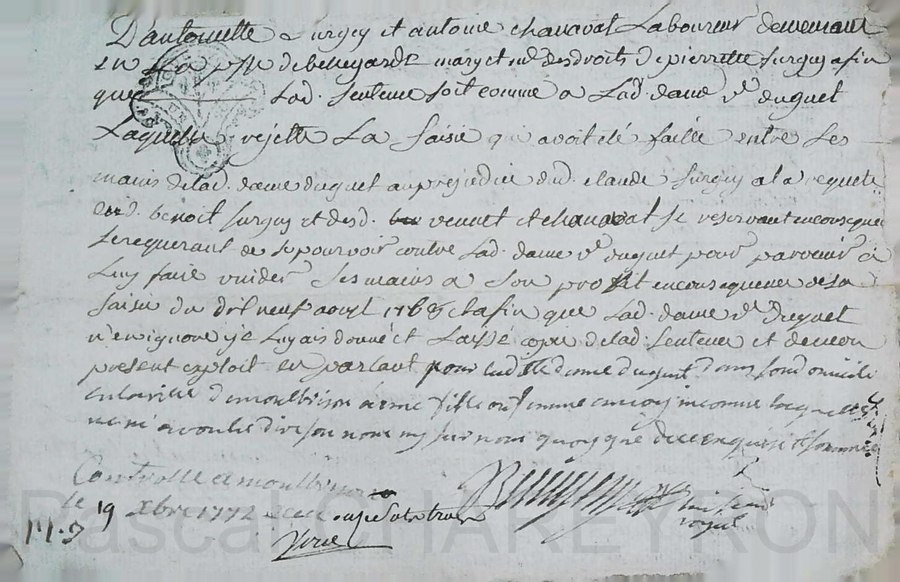 D'antoinette Surgey et antoine chanavat Laboureur demeurant
en La psse de bellegarde mary et md des droits de pierrette Surgey afin
que Lad. Sentence soit comme a Lad. dame ve duguet
Laquelle rejette La saisie qui avoit eté faitte entre Les
mains de lad. dame duguet au prejudice dud. claude Surgey a la requete
dud. benoit Surgey et desd. vennet et chanavat se reservant en consequence
Le requerant de se pourvoir contre Lad. dame ve duguet pour parvenir a
Luy faire vuider Ses mains a Son profit en consequence de sa
saisie du dit neuf aoust 1768 et afin que Lad. dame ve duguet
n'en ignore je Luy ais donné et Laissé copie de lad. Sentence et de mon
present exploit en parlant pour lad. dame duguet dans son domicile
en la ville de montbrison a une fille ou femme a moy inconnue laquelle
ne m'a voulu dire son nom ny surnom quoyque de ce enquise et sommée
Controlle a montbrison
le 19 xbre 1772
11.s
Pascal CHAREYRON